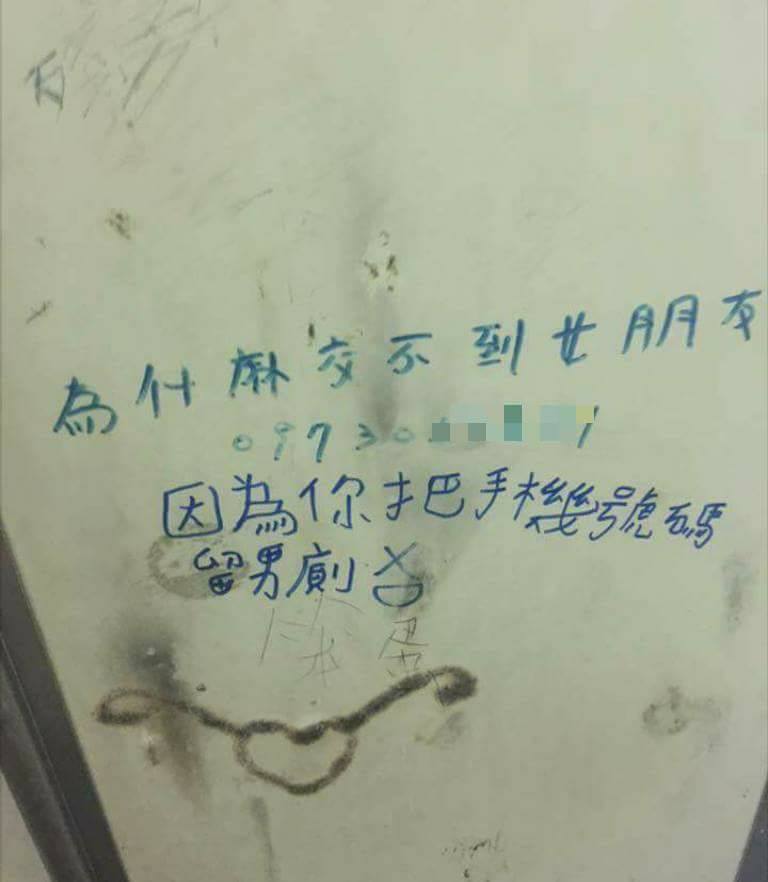 為什麻交不到女朋友
因為你把手機號碼
留男廁
笨蛋